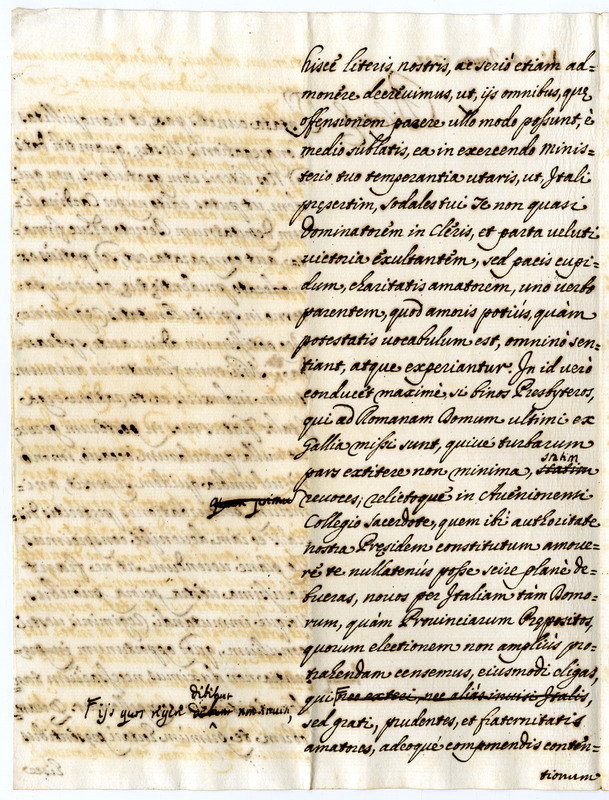 hisce literis, nostris, ac seriò etiam ad=
monere decrevimus, ut, ijs omnibus, quę
offensionem parere ullo modo possunt, è
medio sublatis, ea in exercendo minis=
terio tuo temperantia utaris, ut, Itali
pręsertim, sodales tui Te non quasi
dominatorem in Cleris, et parta veluti
victoria exultantem, sed pacis cupi=
dum, charitatis amatorem, uno verbo
parentem, quod amoris potiùs, quàm
potestatis vocabulum est, omninò sen=
tiant, atque experiantur. In id verò
conducet maximè, si binos Presbyteros,
qui ad Romanam Domum ultimi ex
Gallia missi sunt, quive turbarum
pars extitere non minima, statim statim
revoces; relictoque in Avenionensi
Collegio Sacerdote, quem ibi authoritate
nostra Pręsidem constitutum amove=
re te nullatenùs posse scire planè de=
bueras, novos per Italiam tam Domo=
rum, quàm Provinciarum Prępositos,
quorum electionem non ampliùs pro=
trahendam censemus, eiusmodi eligas,
qui nec exteri, nec aliàs invisi Italis,
sed grati, prudentes, et fraternitatis
amatores, adeoque componendis conten=
tionum
quam primum
dibitur
F ijs quos regere non invisi,